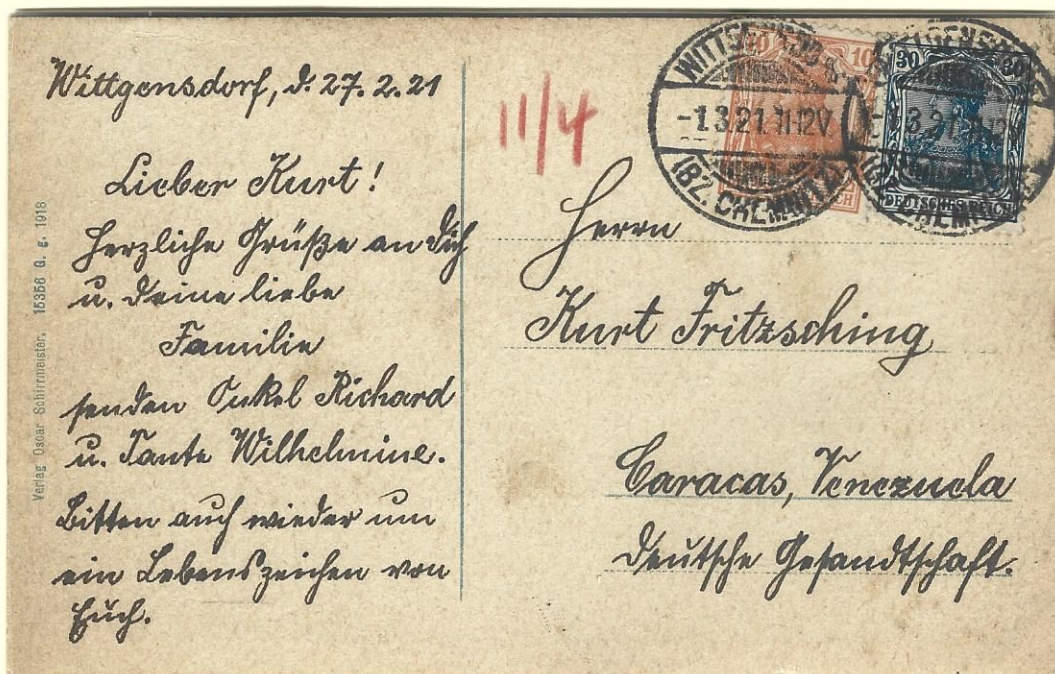 Wittgensdorf, d. 27. 2. 21
Lieber Kurt!
Herzliche Grüße an Dich
u. Deine liebe
Familie
senden Onkel Richard
u. Tante Wilhelmine.
Bitten auch wieder um
ein Lebenszeichen von
Euch.
Verlag Oscar Schirrmeister. 15356 G. g. 1918
11/4
10 10
30 30
-1.3.21. 11-12V
(BZ. CHEMNITZ)
DEUTSCHES REICH
Herrn
Kurt Fritzsching
Caracas, Venezuela
Deutsche Gesandtschaft.